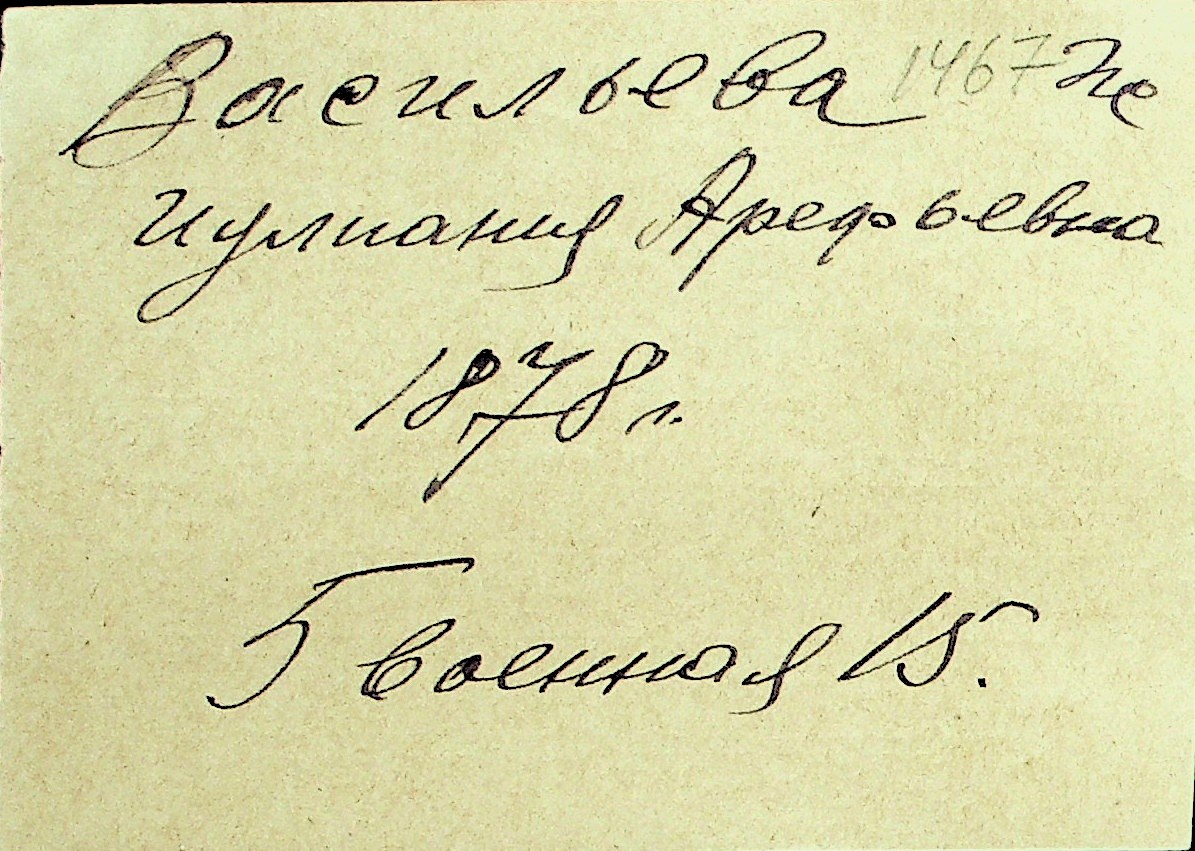 Васильева 1467
Иулиания Арефьевна
1878 г.
5 военная 15.